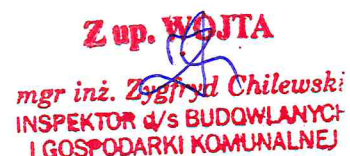 Z up. WÓJTA
mgr inż. Zygfryd Chilewski
INSPEKTOR d/s BUDOWLANYCH
I GOSPODARKI KOMUNALNEJ